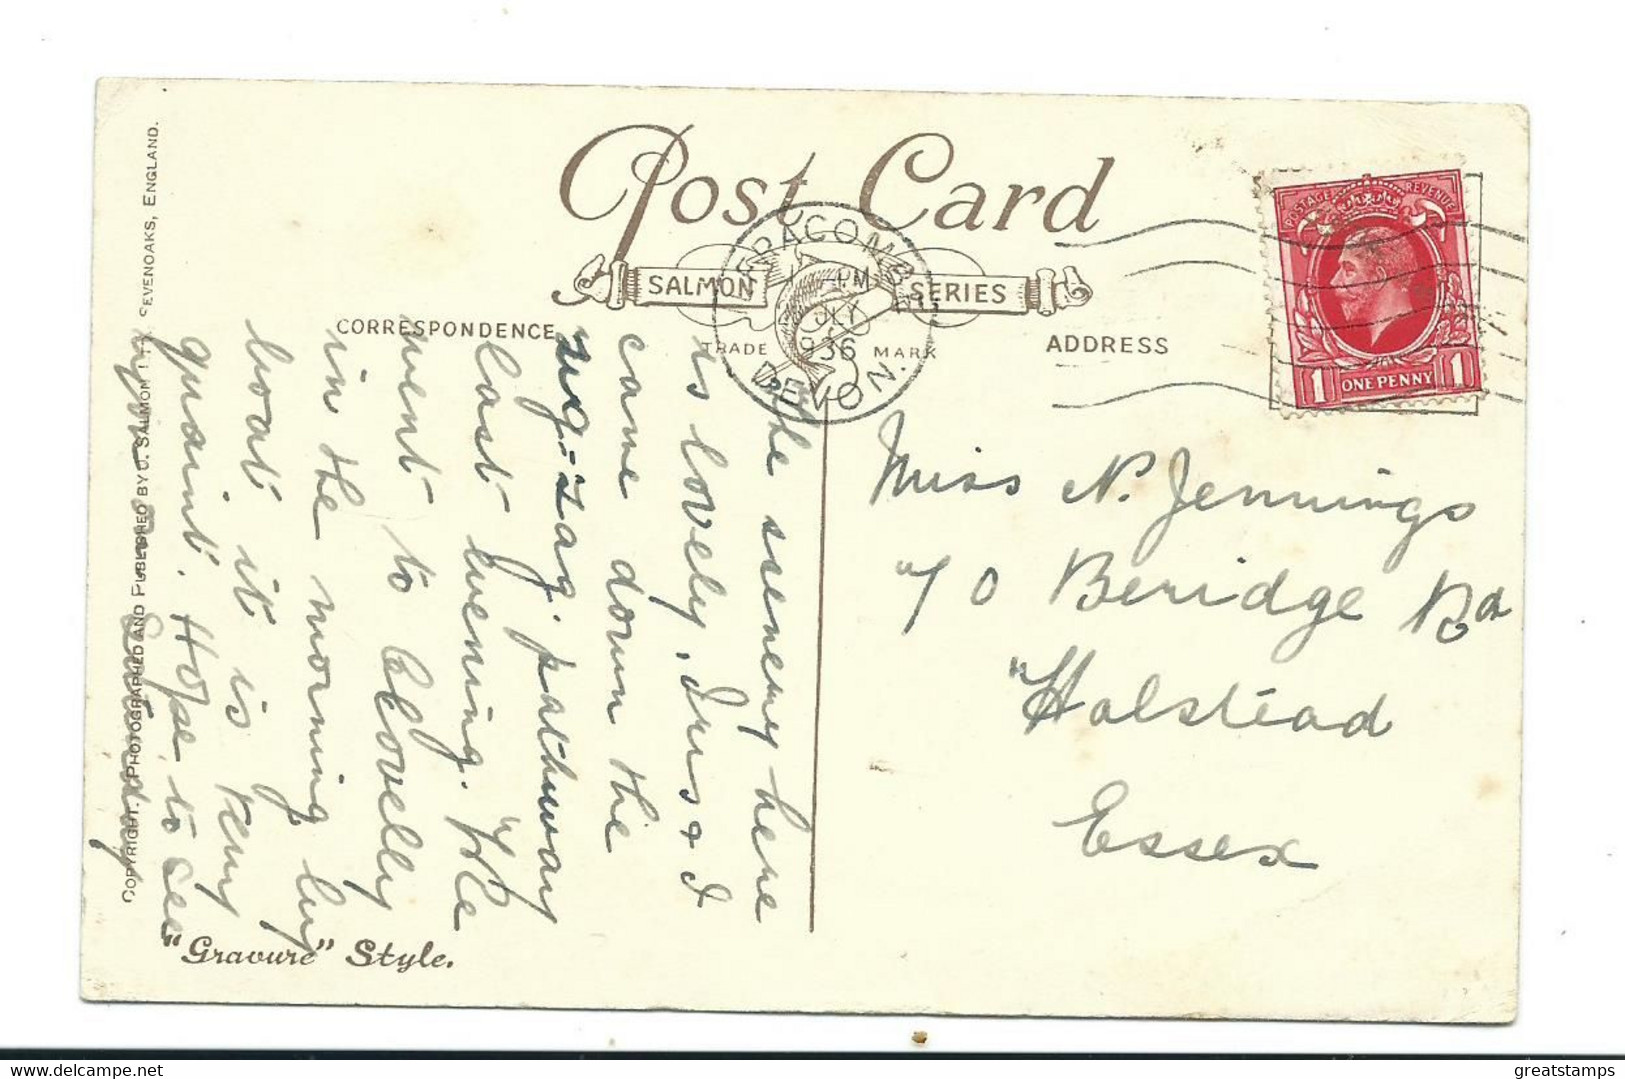 Post Card
SALMON SERIES
TRADE MARK
CORRESPONDENCE
ADDRESS
ILFRACOMBE
PM
JLY
1936
DEVON.
POSTAGE REVENUE
1 ONE PENNY 1
the scenery here
is lovely, Iris & I
came down the
zig-zag pathway
last evening. We
went to Clovelly
in the morning by
boat it is very
quaint. Hope to see
you on Sunday
Miss N. Jennings
70 Beridge Rd
Halstead
Essex
COPYRIGHT. PHOTOGRAPHED AND PUBLISHED BY J. SALMON LTD. SEVENOAKS, ENGLAND.
"Gravure" Style.
greatstamps